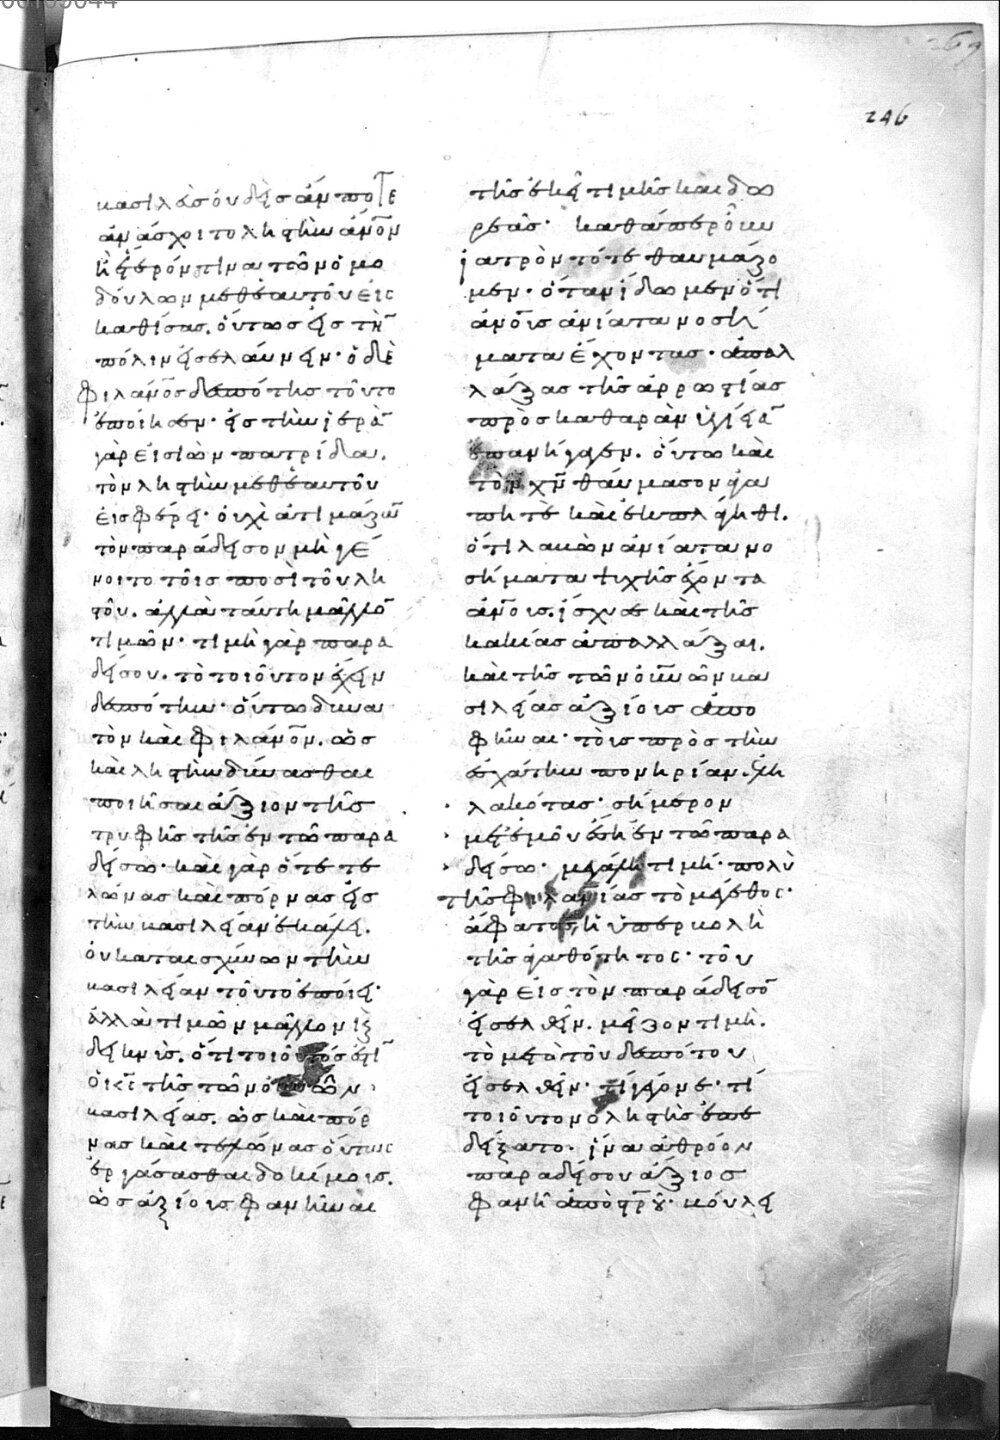 246
βασιλεὺς οὐδεὶς ἄν ποτε
ἀνάσχοιτο ληστὴν ἄν̅ο̅ν̅
ἢ ἕτερόν τινα τῶν ὁμο
δούλων μεθ' ἑαυτοῦ εἰς
καθίσας. οὕτως εἰς τὴν
πόλιν εἰσελαύνειν· ὁ δὲ
φιλάν̅ο̅ς δεσπότης τοῦτο
ἐποίησεν· εἰς τὴν ἱερὰν
γὰρ εἰσιὼν πατρίδα.
τὸν ληστὴν μεθ' ἑαυτοῦ
εἰσφέρει· οὐχὶ ἀτιμάζων
τὸν παράδεισον μὴ γέ
νοιτο τοῖς ποσὶ τοῦ λη
στοῦ. ἀλλὰ ταύτη μᾶλλον
τιμῶν· τιμὴ γὰρ παρα
δείσου. τὸ τοιοῦτον ἔχειν
δεσπότην· οὕτω δυνα
τὸν καὶ φιλάν̅ο̅ν̅. ὡς
καὶ ληστὴν δύνασθαι
ποιῆσαι ἄξιον τῆς
τρυφῆς τῆς ἐν τῶ παρα
δείσω· καὶ γὰρ ὅτε τε
λώνας καὶ πόρνας εἰς
τὴν βασιλείαν ἐκάλει.
οὐ καταισχύνων τὴν
βασιλείαν τοῦτο ἐποίει·
ἀλλὰ τιμῶν μᾶλλον καὶ
δεικνὺς. ὅτι τοιοῦτός ἐστιν
ὁ κ̅ς̅ τῆς τῶν οὐ̅ν̅ῶν
βασιλείας. ὡς καὶ πόρ
νας καὶ τελώνας οὕτως
ἐργάσασθαι δοκίμους.
ὡς ἀξίους φανῆναι
τῆς ἐκεῖ τιμῆς καὶ δω
ρεᾶς· καθάπερ οὖν
ἰατρὸν τότε θαυμάζο
μεν· ὅταν ἴδωμεν ὅτι
ἄν̅ο̅υς ἀνίατα νοσή
ματα ἔχοντας· ἀπαλ
λάξας τῆς ἀρρωστίας
πρὸς καθαρὰν ὑγίειαν
ἐπανήγαγεν. οὕτω καὶ
τὸν χ̅ν̅ θαύμασον ἀγα
πητὲ καὶ ἐκπλάγηθι.
ὅτι λαβὼν ἀνίατα νο
σήματα ψυχῆς ἔχοντα
ἄν̅ο̅υς. ἴσχυσε καὶ τῆς
κακίας ἀπαλλάξαι.
καὶ τῆς τῶν οὐ̅ν̅ῶν βα
σιλείας ἀξίους ἀπο
φῆναι· τοὺς πρὸς τὴν
ἐσχάτην πονηρίαν ἐλη
λακότας· σήμερον
μετ' ἐμοῦ ἔση ἐν τῶ παρα
δείσω· μεγάλη τιμή· πολὺ
τῆς φιλαν̅ίας τὸ μέγεθος·
ἄφατος ἡ ὑπερβολὴ
τῆς ἀγαθότητος· τοῦ
γὰρ εἰς τὸν παράδεισον
εἰσελθεῖν. μείζον τιμὴ.
τὸ μετὰ τοῦ δεσπότου
εἰσελθεῖν· τί γέγονε· τί
τοιοῦτον ὁ ληστὴς ἐπε
δείξατο. ἵνα ἀθρόον
παραδείσου ἄξιος
φανῆ ἀπὸ στ̅ρ̅οῦ· βούλει